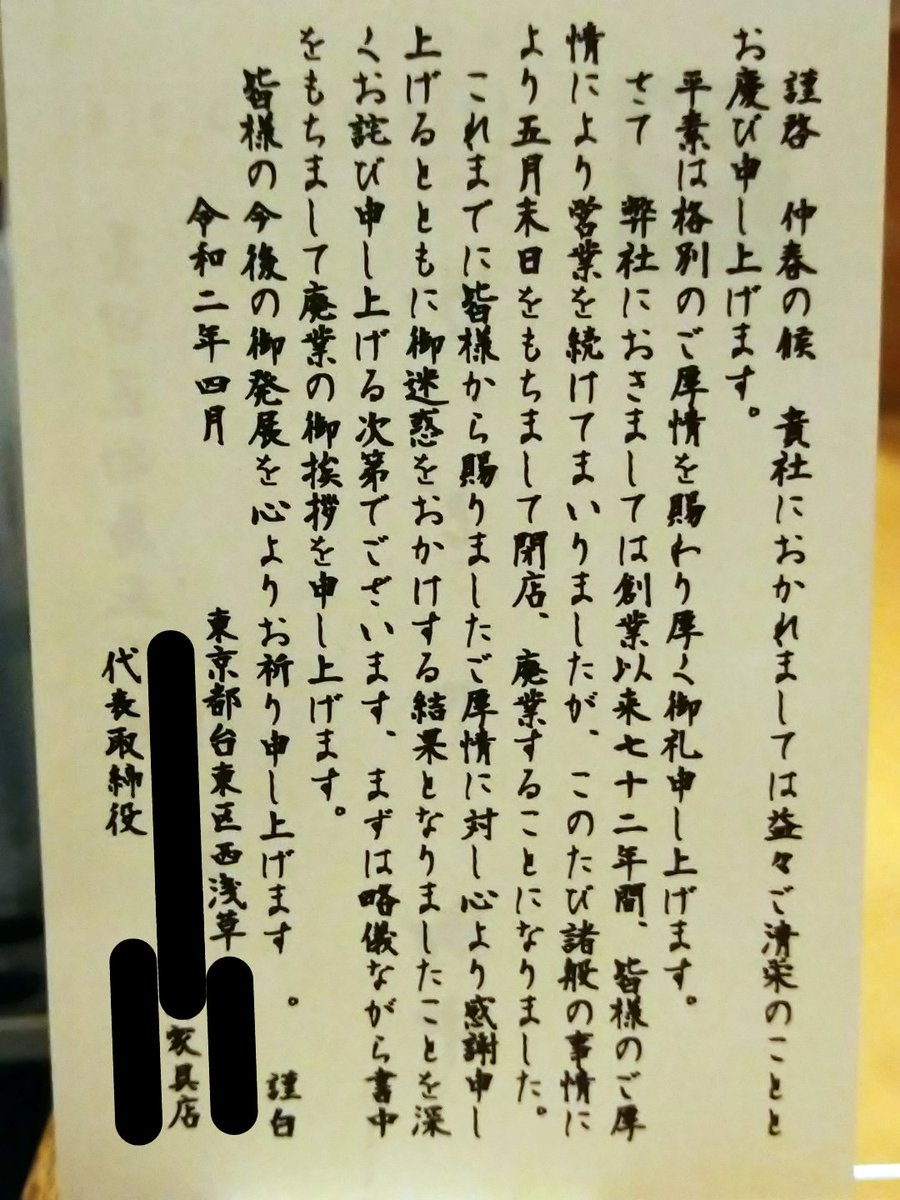 謹啓　仲春の候　貴社におかれましては益々ご清栄のことと
お慶び申し上げます。
平素は格別のご厚情を賜わり厚く御礼申し上げます。
さて　弊社におきましては創業以来七十二年間、皆様のご厚
情により営業を続けてまいりましたが、このたび諸般の事情に
より五月末日をもちまして閉店、廃業することになりました。
これまでに皆様から賜りましたご厚情に対し心より感謝申し
上げるとともに御迷惑をおかけする結果となりましたことを深
くお詫び申し上げる次第でございます、まずは略儀ながら書中
をもちまして廃業の御挨拶を申し上げます。
皆様の今後の御発展を心よりお祈り申し上げます　。　謹白
令和二年四月
東京都台東区西浅草
家具店
代表取締役